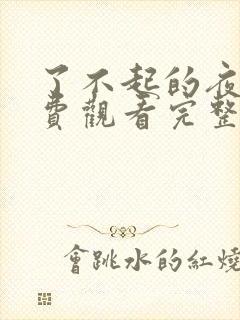 了不起的夜
費觀看完整
會跳水的紅燒